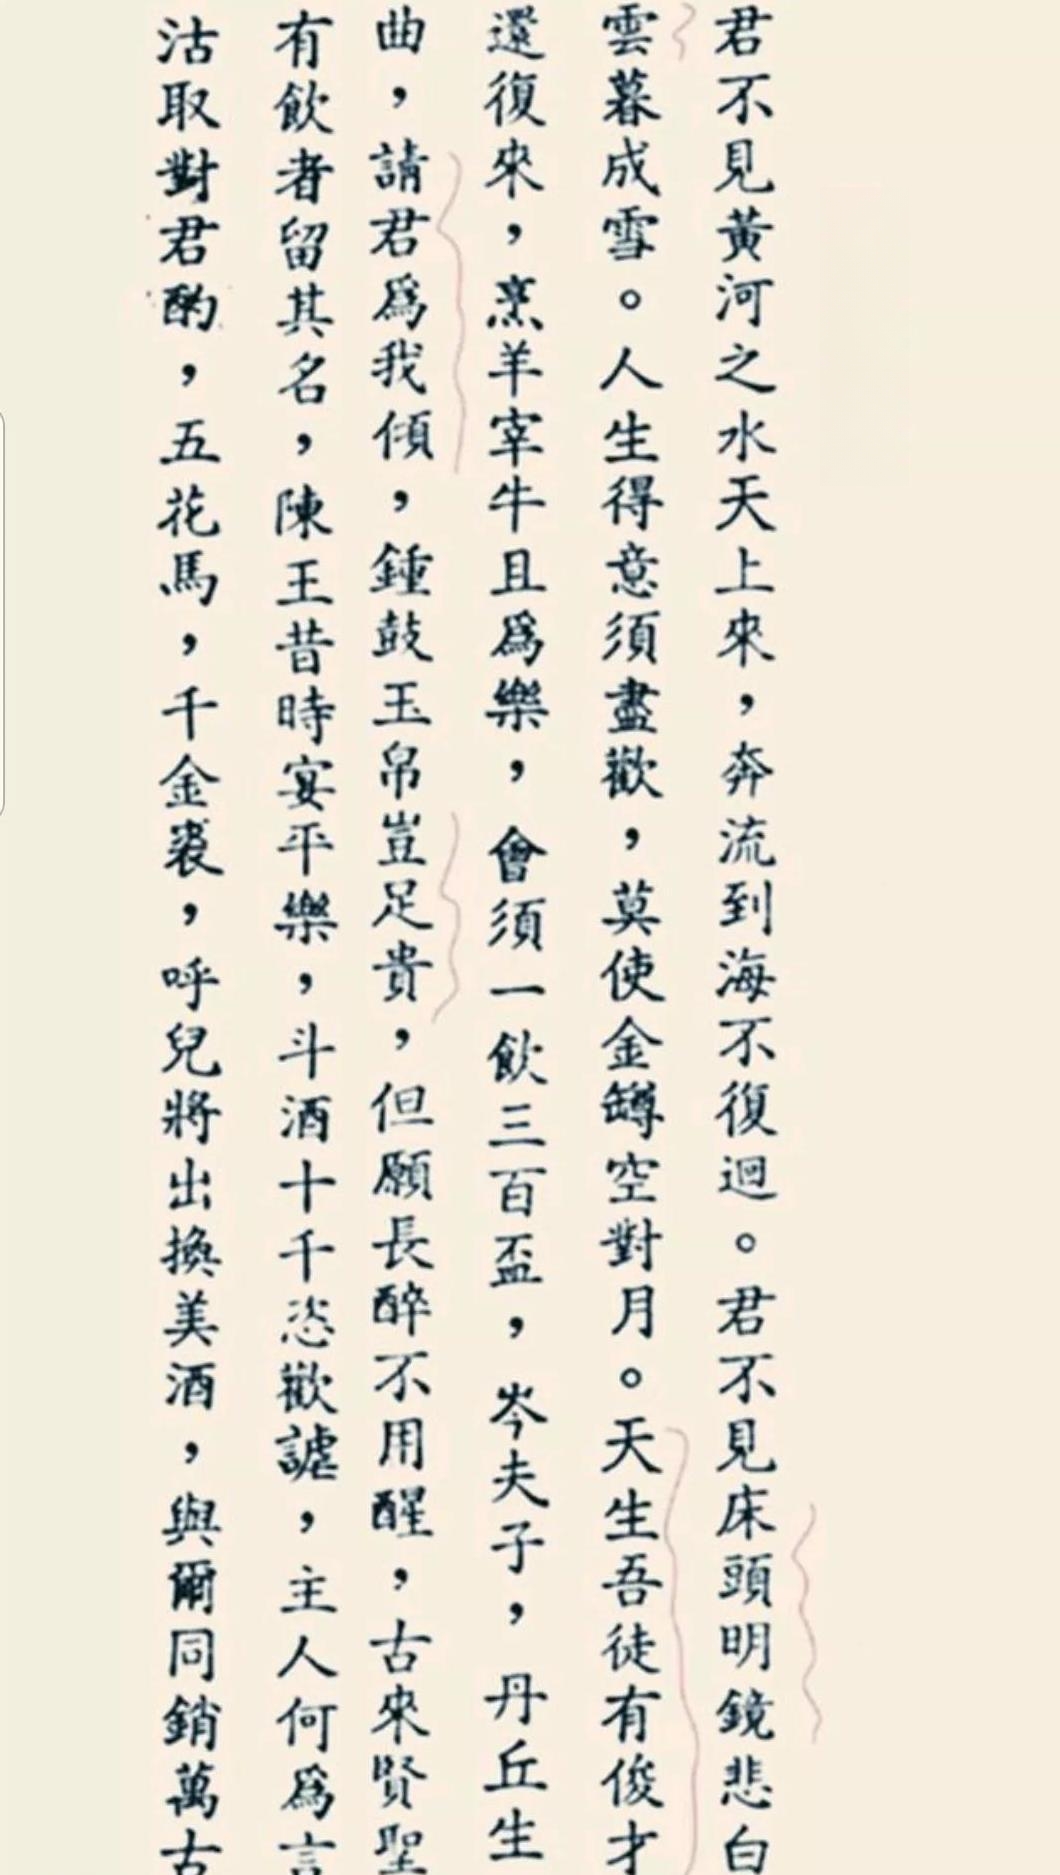 君不見黃河之水天上來，奔流到海不復迴。君不見床頭明鏡悲白
雲暮成雪。人生得意須盡歡，莫使金罇空對月。天生吾徒有俊才
還復來，烹羊宰牛且爲樂，會須一飲三百盃，岑夫子，丹丘生
曲，請君爲我傾，鍾鼓玉帛豈足貴，但願長醉不用醒，古來賢聖
有飲者留其名，陳王昔時宴平樂，斗酒十千恣歡謔，主人何爲言
沽取對君酌，五花馬，千金裘，呼兒將出換美酒，與爾同銷萬古